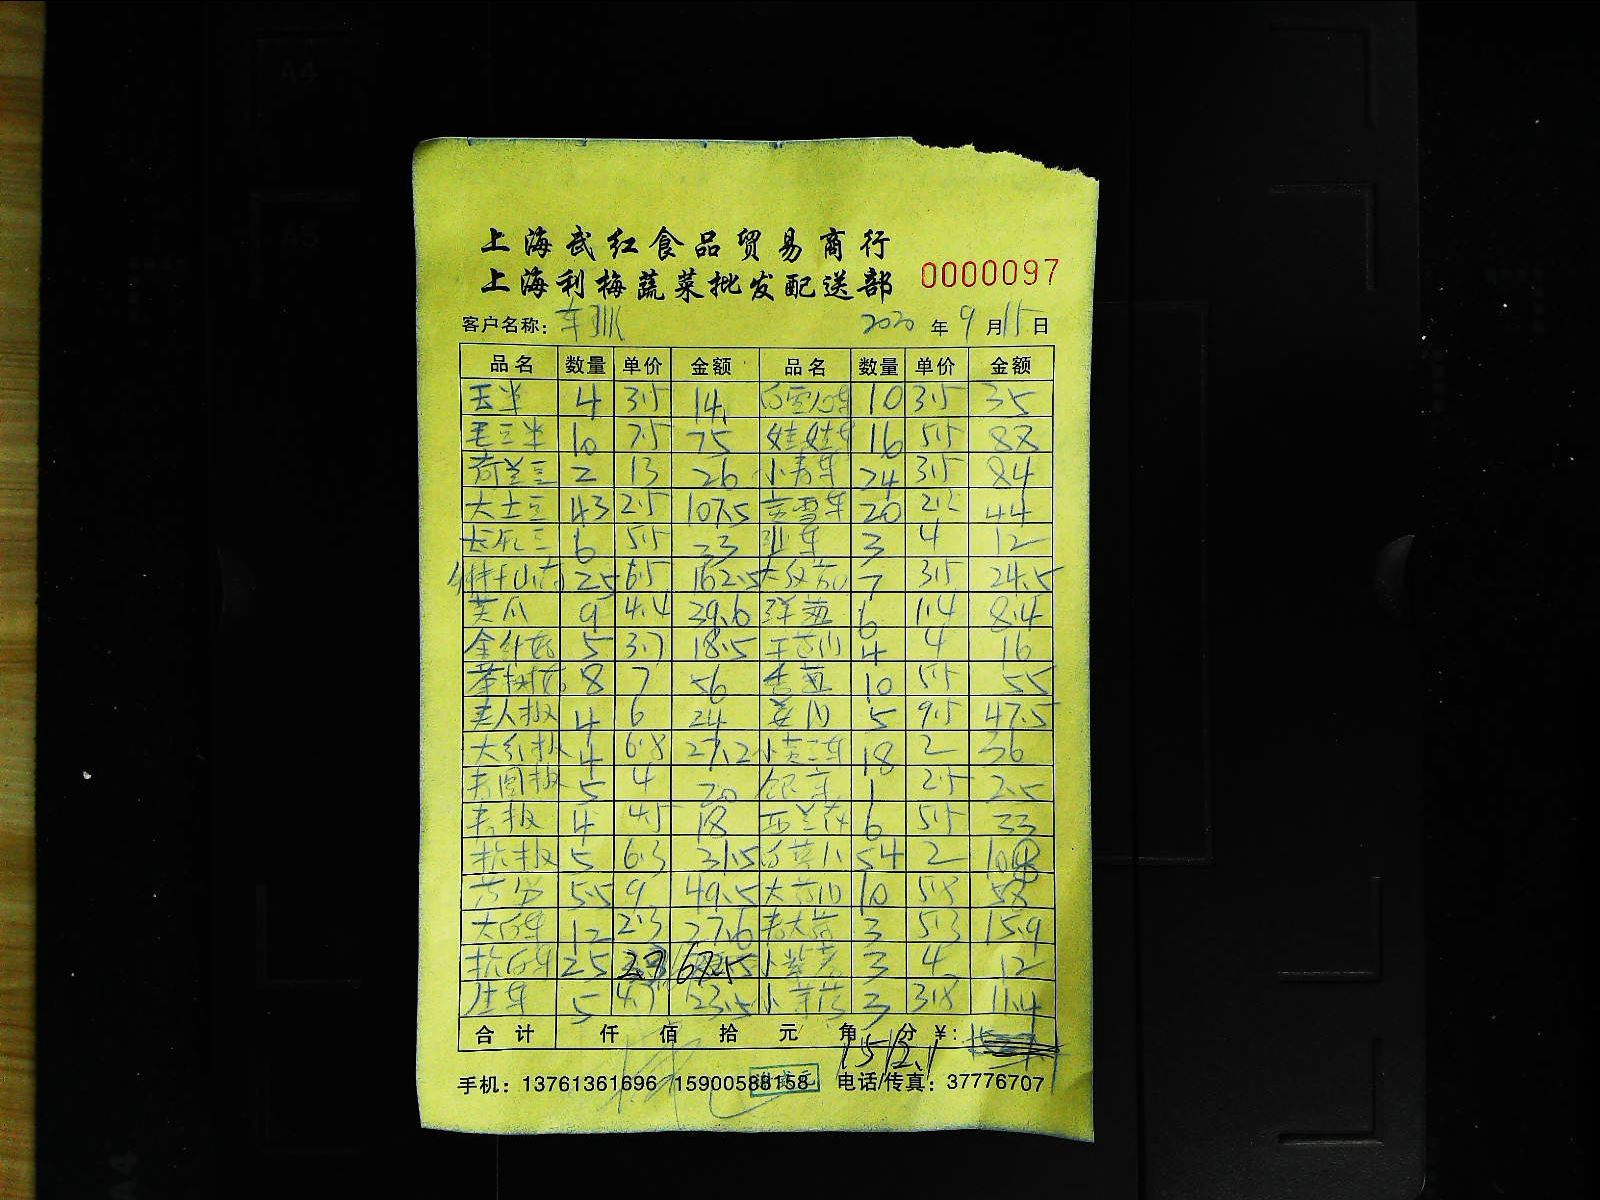 上海武红食品贸易商行
上海利梅蔬菜批发配送部 0000097
客户名称: 2020 年 9 月 15 日
品名 数量 单价 金额 品名 数量 单价 金额
玉米 4 3.5 14 10 3.5 35
毛豆米 10 7.5 75 娃娃菜 16 5.5 88
荷兰豆 2 13 26 小青菜 24 3.5 84
大土豆 43 2.5 107.5 20 2.2 44
6 5.5 33 3 4 12
铁杆山药 25 6.5 162.5 7 3.5 24.5
黄瓜 9 4.4 39.6 洋葱 6 1.4 8.4
金针菇 5 3.7 18.5 4 4 16
茶树菇 8 7 56 香葱 10 5.5 55
美人椒 4 6 24 5 9.5 47.5
大红椒 4 6.8 27.2 18 2 36
青圆椒 5 4 20 1 2.5 2.5
青椒 4 4.5 18 西兰花 6 5.5 33
杭椒 5 6.3 31.5 54 2 108
5.5 9 49.5 10 5.8 58
大白菜 12 2.3 27.6 3 5.3 15.9
杭白菜 25 2.7 67.5 3 4 12
生菜 5 4.7 23.5 3 3.8 11.4
合计 仟 佰 拾 元 角 分 ¥: 1512.1
手机: 13761361696 15900588158 电话/传真: 37776707